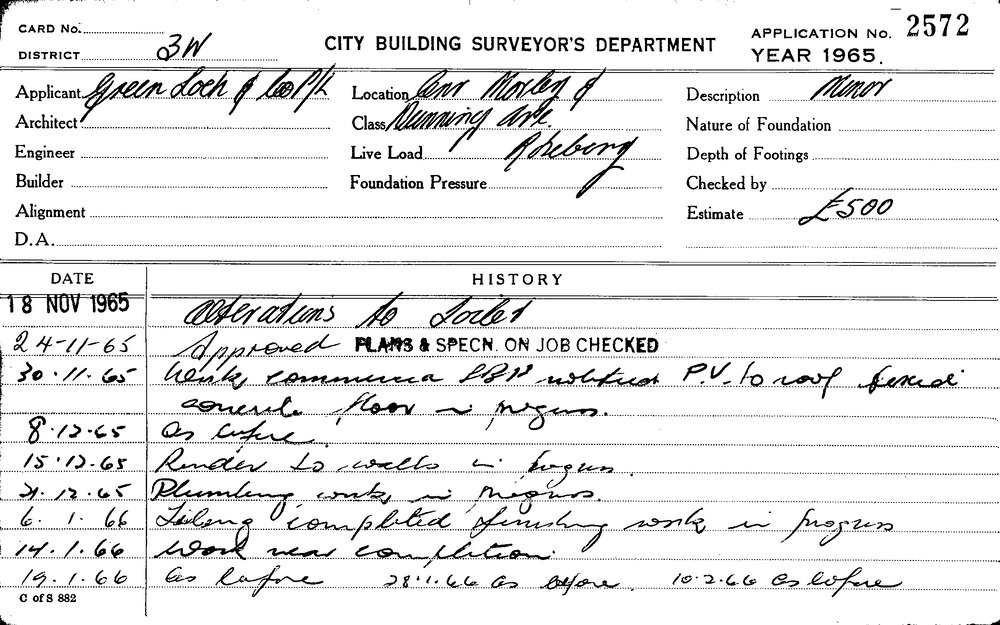 CARD No.
DISTRICT 3W
CITY BUILDING SURVEYOR'S DEPARTMENT
APPLICATION No. 2572
YEAR 1965.
Applicant Green Loch & Co P/L
Location Cnr Morley &
Description Minor
Architect
Class Dunning Ave.
Nature of Foundation
Engineer
Live Load Rosebery
Depth of Footings
Builder
Foundation Pressure
Checked by
Alignment
Estimate £500
D.A.
DATE
HISTORY
18 NOV 1965 Alterations to Toilet
24-11-65 Approved PLANS & SPECN. ON JOB CHECKED
30.11.65 Work commenced notified P.V. to roof fixed
concrete floor in progress.
8.12.65 As before.
15.12.65 Render to walls in progress.
21.12.65 Plumbing work in progress.
6.1.66 Tiling completed finishing work in progress
14.1.66 Work near completion.
19.1.66 As before 28.1.66 As before. 10.2.66 as before
C of S 882